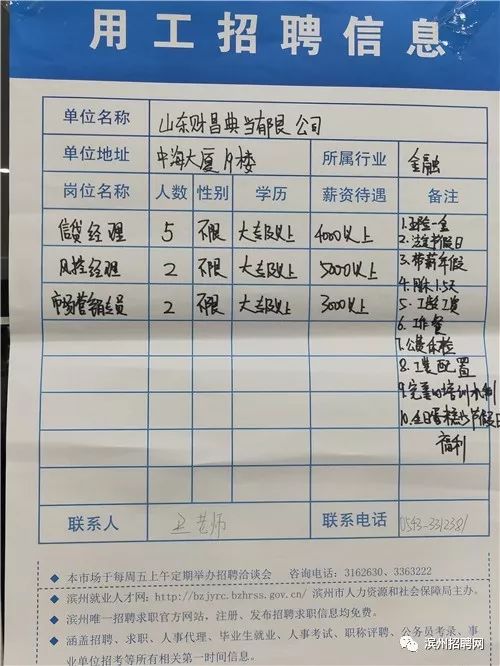 用工招聘信息
单位名称 山东财昌典当有限公司
单位地址 中海大厦19楼 所属行业 金融
岗位名称 人数 性别 学历 薪资待遇 备注
信贷经理 5 不限 大专及以上 4000以上
风控经理 2 不限 大专及以上 5000以上
市场营销专员 2 不限 大专及以上 3000以上
1.五险一金
2.法定节假日
3.带薪年假
4.月休1.5天
5.工龄工资
6.工作餐
7.公费体检
8.工装配置
9.完善的培训机制
10.生日蛋糕以及节假日
福利
联系人 联系电话 0543-3312381
◆ 本市场于每周五上午定期举办招聘洽谈会 咨询电话:3162630、3363222
◆ 滨州就业人才网:http://bzjyrc.bzhrss.gov.cn/ 滨州市人力资源和社会保障局主办。
◆ 滨州唯一招聘求职官方网站，注册、发布招聘求职信息均免费。
◆ 涵盖招聘、求职、人事代理、毕业生就业、人事考试、职称评聘、公务员考录、事
业单位招考等所有相关第一时间信息。
滨州招聘网